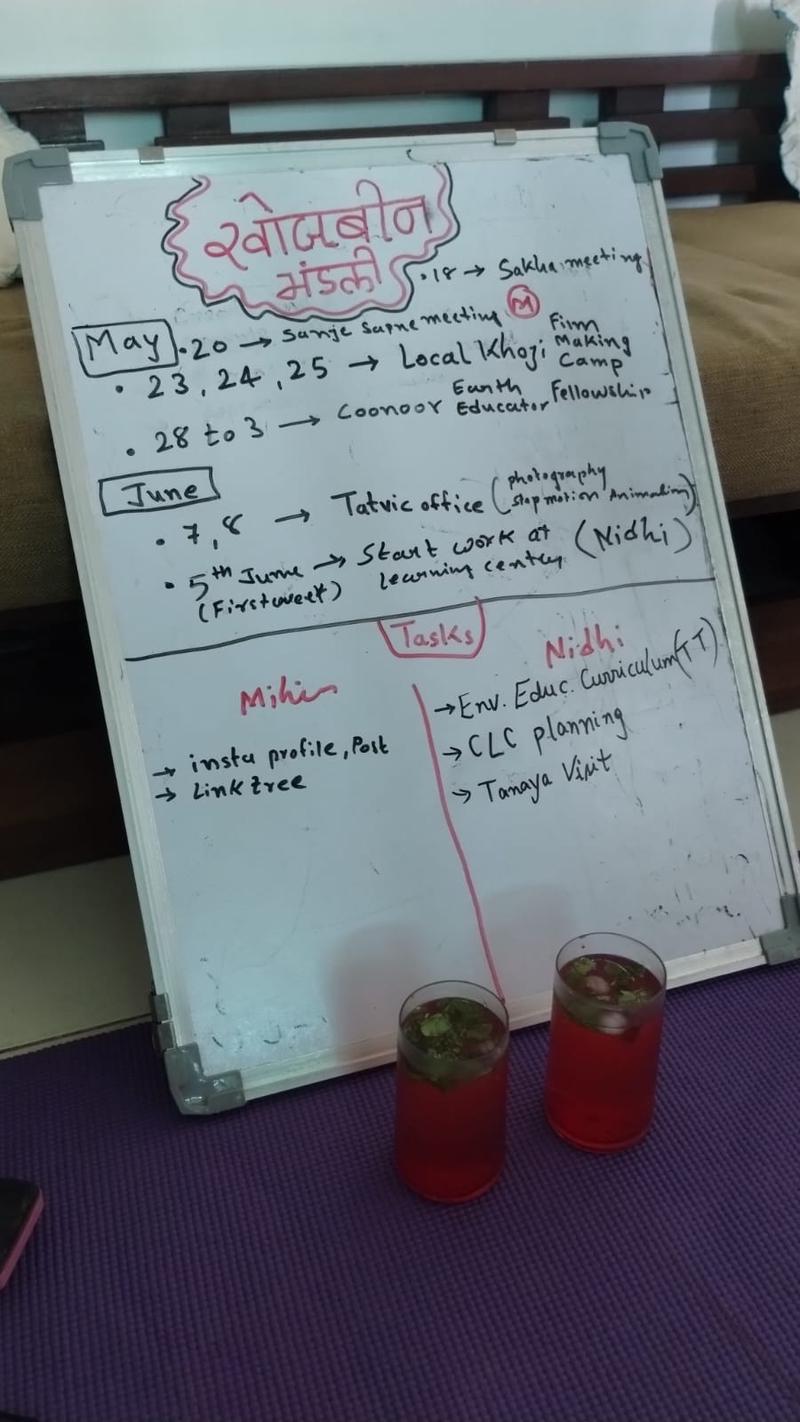 खोजबीन
मंडली
.18 → Sakha meeting
May
.20 → Sanje Sapne meeting (M)
• 23, 24, 25 → Local Khoji Film Making Camp
• 28 to 3 → Coonoor Earth Educator Fellowship
June
• 7, 8 → Tatvic office (photography
stop motion Animation)
• 5th June → Start work at (Nidhi)
(First week) learning center
Tasks
Mihir
→ insta profile, Post
→ Linktree
Nidhi
→ Env. Educ. Curriculum (TT)
→ CLC planning
→ Tanaya Visit